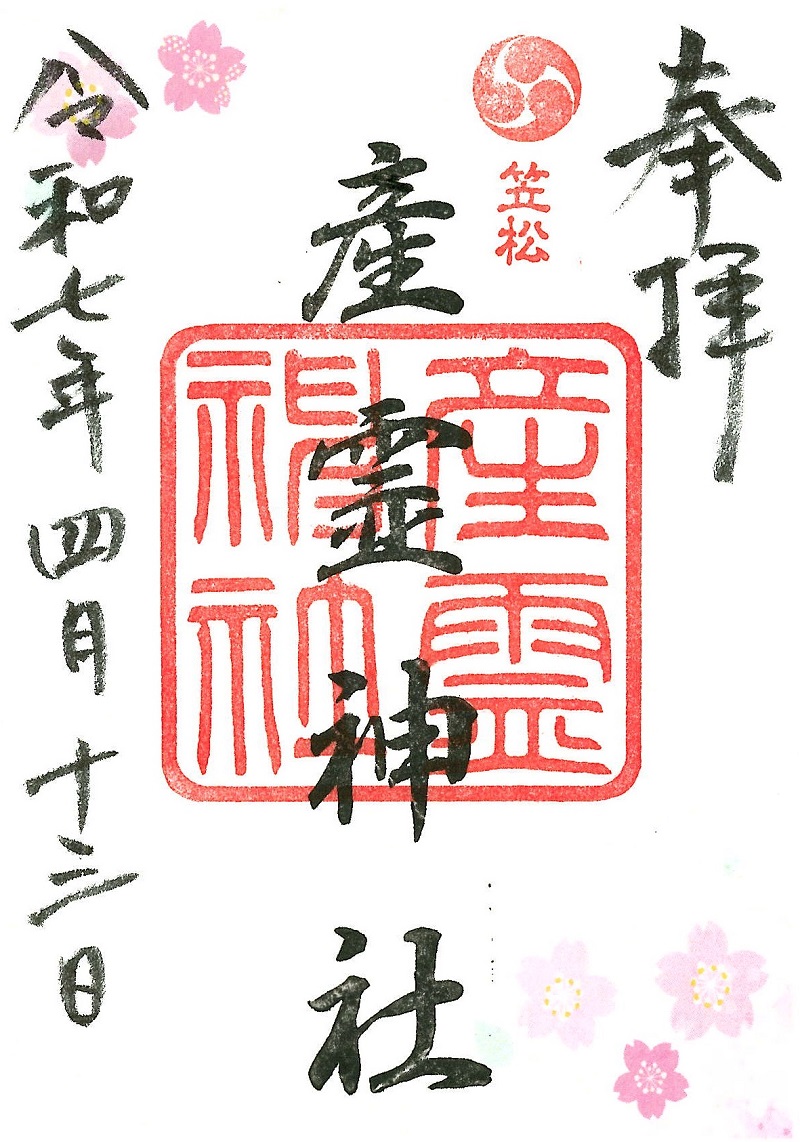 奉拝
笠松
産霊神社
産霊神社
令和七年四月十三日